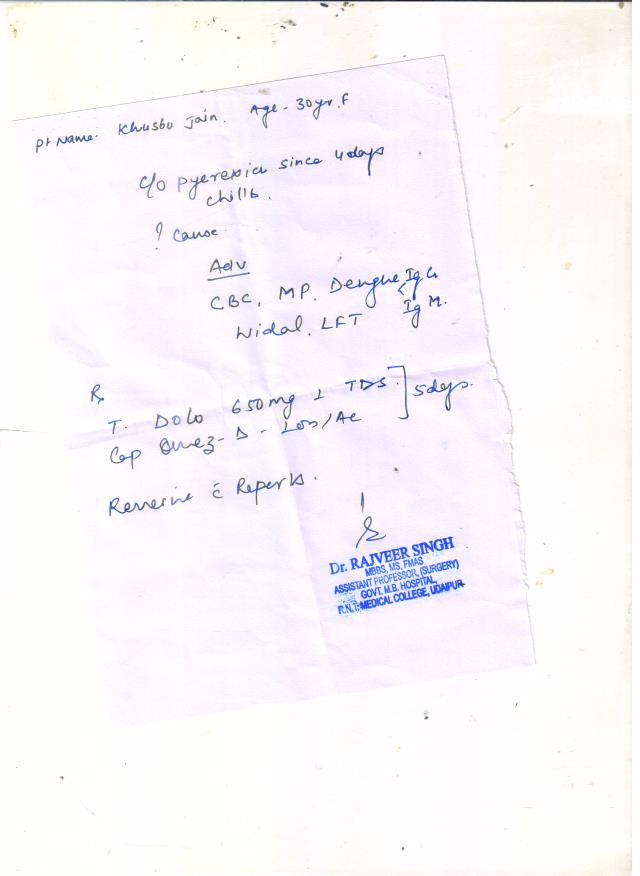 Pt Name. Khusbu Jain. Age - 30yr. F
c/o pyerexia since 4 days
chills.
? Cause
Adv
CBC, MP. Dengue < IgG
IgM.
Widal. LFT
Rx
T. Dolo 650mg 1 TDS.
Cap Omez-D - 1OD/AC ] 5days.
Reverine c̄ Reports.
Dr. RAJVEER SINGH
MBBS, MS, FMAS
ASSISTANT PROFESSOR, (SURGERY)
GOVT. M.B. HOSPITAL,
R.N.T. MEDICAL COLLEGE, UDAIPUR